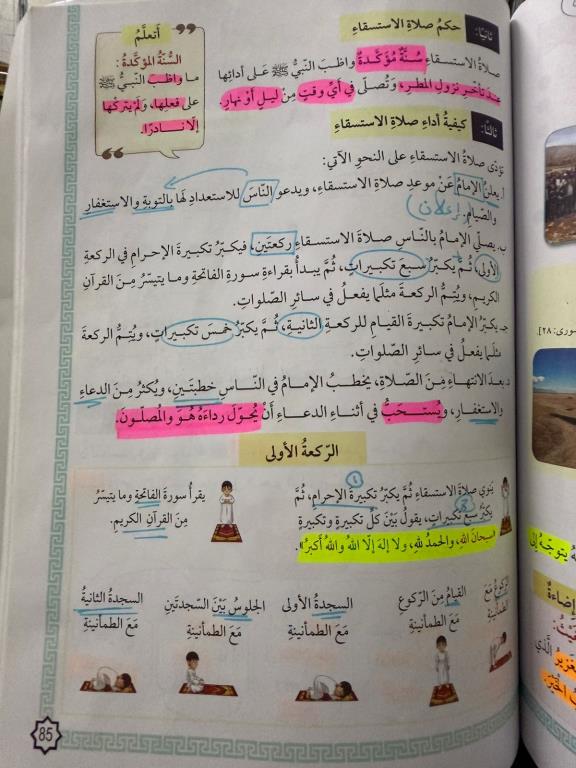 ثانيًا: حكمُ صلاةِ الاستسقاءِ
صلاةُ الاستسقاءِ سُنَّةٌ مُؤَكَّدَةٌ واظبَ النّبيُّ ﷺ عَلى أدائِها
عندَ تأخّرِ نزولِ المطرِ، وتُصلّى في أيّ وقتٍ مِنْ ليلٍ أوْ نهارٍ.
أتعلَّمُ
السُّنّةُ المؤكّدةُ:
ما واظبَ النّبيُّ ﷺ
على فعلِها، ولَمْ يتركْها
إلّا نادرًا.
ثالثًا: كيفيةُ أداءِ صلاةِ الاستسقاءِ
تؤدّى صلاةُ الاستسقاءِ على النحوِ الآتي:
أ. يعلنُ الإمامُ عَنْ موعدِ صلاةِ الاستسقاءِ، ويدعو النّاسَ للاستعدادِ لَها بالتوبةِ والاستغفارِ
والصّيامِ. (إعلان)
ب. يصلّي الإمامُ بالنّاسِ صلاةَ الاستسقاءِ ركعتَينِ، فيكبّرُ تكبيرةَ الإحرامِ في الركعةِ
الأولى، ثُمَّ يكبّرُ سبعَ تكبيراتٍ، ثُمَّ يبدأُ بقراءةِ سورةِ الفاتحةِ وما يتيسّرُ مِنَ القرآنِ
الكريمِ، ويُتِمُّ الركعةَ مثلَما يفعلُ في سائرِ الصّلواتِ.
جـ. يكبّرُ الإمامُ تكبيرةَ القيامِ للركعةِ الثانيةِ، ثُمَّ يكبّرُ خمسَ تكبيراتٍ، ويُتِمُّ الركعةَ
مثلَما يفعلُ في سائرِ الصّلواتِ.
د. بعدَ الانتهاءِ مِنَ الصّلاةِ، يخطبُ الإمامُ في النّاسِ خطبتَينِ، ويُكثرُ مِنَ الدعاءِ
والاستغفارِ، ويُستحَبُّ في أثناءِ الدعاءِ أنْ يُحوّلَ رداءَهُ هُوَ والمصلّونَ.
الرّكعةُ الأولى
ينوي صلاةَ الاستسقاءِ ثُمَّ يكبّرُ تكبيرةَ الإحرامِ، ثُمَّ
يكبّرُ سبعَ تكبيراتٍ، يقولُ بَيْنَ كلِّ تكبيرةٍ وتكبيرةٍ
«سبحانَ اللهِ، والحمدُ للهِ، ولا إلهَ إلّا اللهُ واللهُ أكبرُ».
يقرأُ سورةَ الفاتحةِ وما يتيسّرُ
مِنَ القرآنِ الكريمِ.
الركوعُ مَعَ
الطمأنينةِ
القيامُ مِنَ الرّكوعِ
مَعَ الطمأنينةِ
السجدةُ الأولى
مَعَ الطمأنينةِ
الجلوسُ بَيْنَ السجدتَينِ
مَعَ الطمأنينةِ
السجدةُ الثانيةُ
مَعَ الطمأنينةِ
85
شورى: ٢٨].
يتوجّهُ إلى
إضاءةٌ